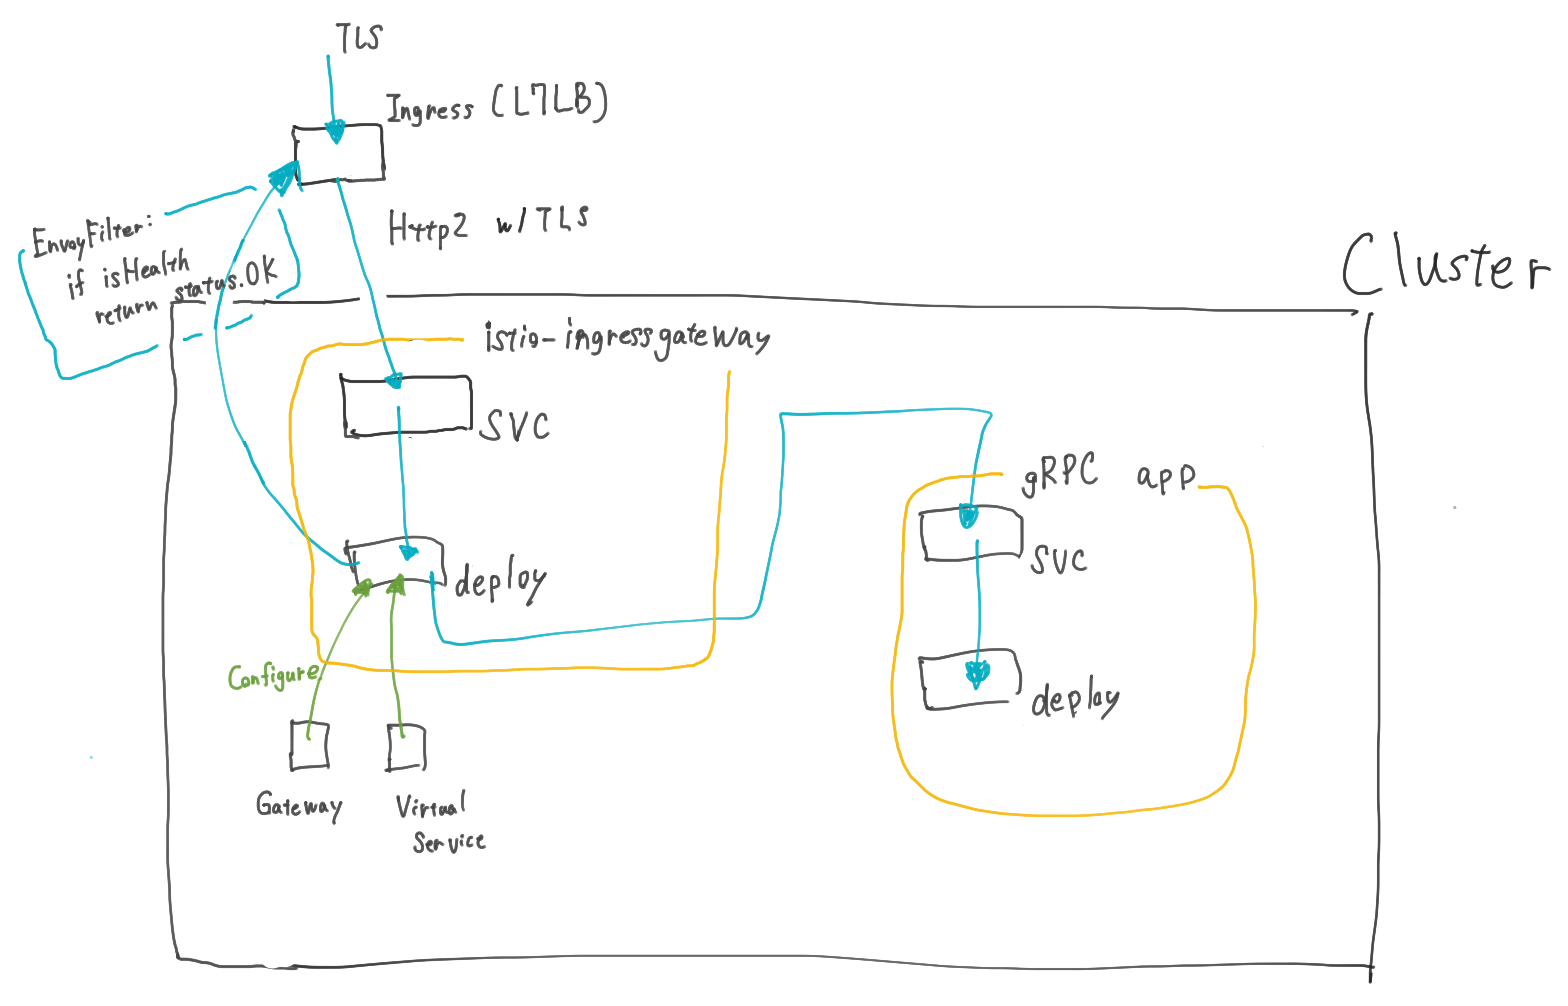 TLS
Ingress (L7LB)
Http2 w/TLS
EnvoyFilter:
if isHealth
return status.OK
Cluster
istio-ingressgateway
SVC
deploy
Configure
Gateway
Virtual
Service
gRPC app
SVC
deploy